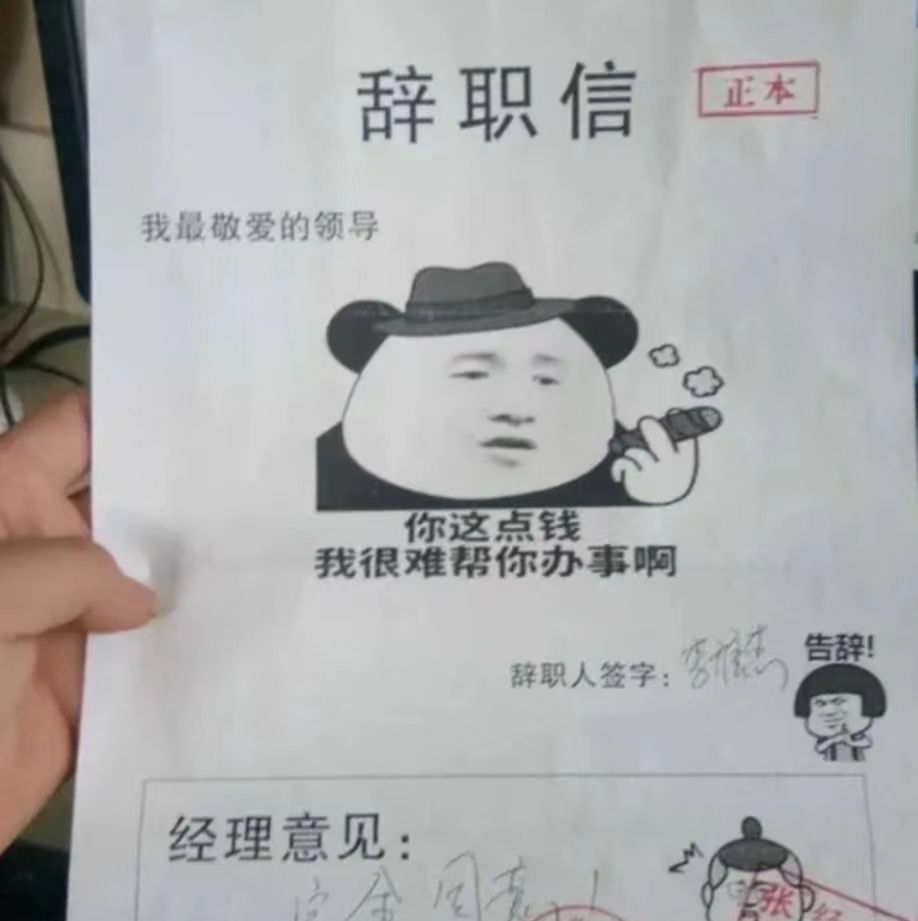 辞职信
正本
我最敬爱的领导
你这点钱
我很难帮你办事啊
告辞!
辞职人签字:
经理意见:
完全同意!
张